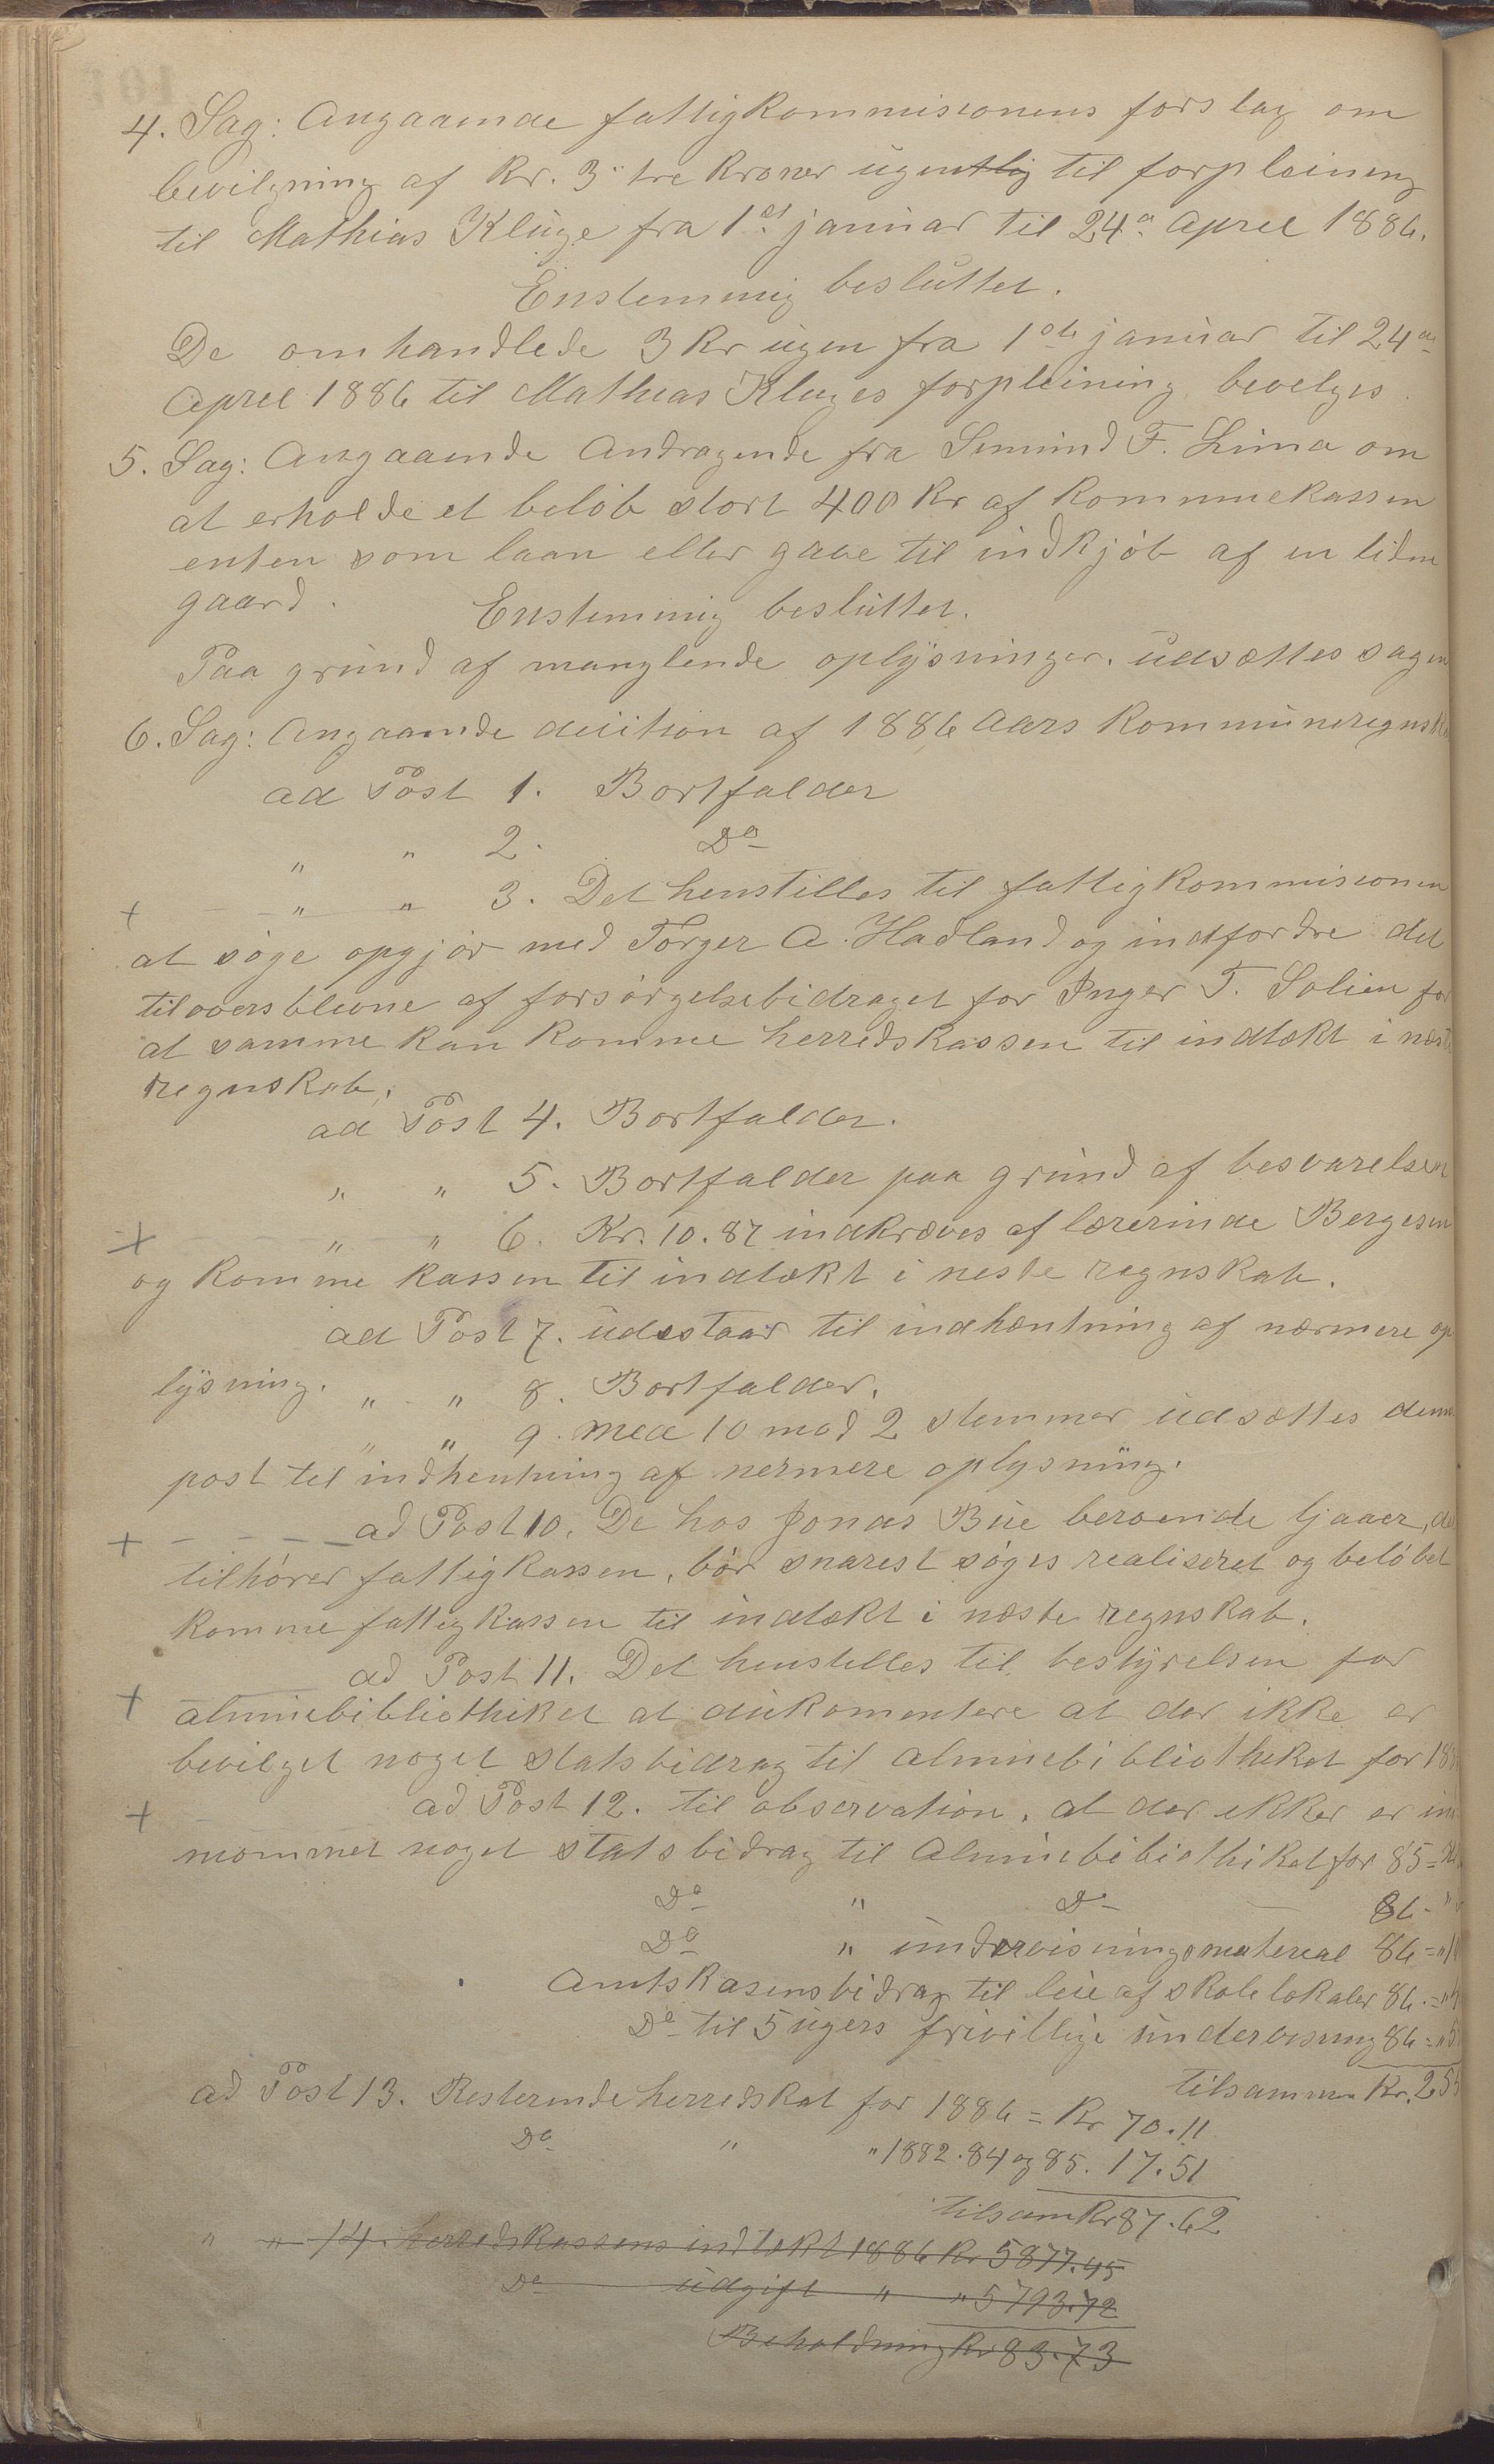 4. Sag: Angaaende fattigkommisionens forslag om
bevilgning af kr. 3 tre kroner ugentlig til forpleining
til Mathias Kluge fra 1st januar til 24a april 1886.
Enstemmig besluttet.
De omhandlede 3 kr ugen fra 1ste januar til 24a
April 1886 til Mathias Kluges forpleining bevelges
5. Sag: Angaaende Andragende fra Semund F. Lima om
at erholde et beløb stort 400 kr af kommunekassen
enten som laan eller gave til indkjøb af en liden
gaard. Enstemmig besluttet.
Paa grund af manglende oplysninger. udsættes sagen
6. Sag: Angaaende decition af 1886 aars kommuneregnsk
ad Post 1. Bortfalder
" " 2. Do
+ " " 3. Det henstilles til fattigkommisionen
at søge opgjør med Torger A. Hadland og indfordre det
tiloversblevne af forsørgelsebidraget for Inger T. Solien for
at samme kan komme herredskassen til indtækt i næste
regnskab.
ad Post 4. Bortfalder.
" " 5. Bortfalder paa grund af besvarelsen
+ " " 6. Kr. 10.87 indkræves af lærerinde Bergesen
og komme kassen til indtækt i neste regnskab.
ad Post 7. udestaar til indhæntning af nærmere op
lysning. " " 8. Bortfalder.
" " 9. med 10 mod 2 stemmer udsættes denne
post til indhentning af nermere oplysning.
+ ad Post 10. De hos Jonas Bue beroende ljaaer, de
tilhører fattigkassen, bør snarest søges realiseret og beløbet
komme fattigkassen til indtækt i næste regnskab.
ad Post 11. Det henstilles til bestyrelsen for
+ almuebibliothiket at dukomentere at der ikke er
bevilget noget statsbidrag til almuebibliotheket for 18
+ ad Post 12. til observation, at der ikker er in
nommet noget statsbidrag til Almuebibiothiket for 85 =
Do " Do 86 -
Do " undervisningsmaterial 86 = "
Amtskasensbidrag til leie af skolelokaler 86. = "
Do til 5 ugers frivillige undervisning 86 = "
tilsammen Kr. 25
ad Post 13. Resterende herredskat for 1886 = Kr 70.11
Do " " 1882. 84 og 85. 17.51
tilsam Kr 87.62
" " 14. herredskassens indtækt 1886 Kr 5877.45
Do udgift " " 5793.72
Beholdning Kr 83.73